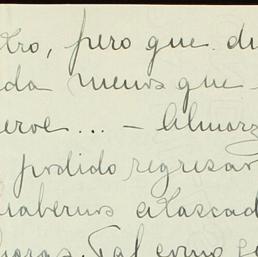 tro, pero que di
da menos que
eroe... - Almorz
podido regresar
habernos atascad
horas. Tal como se